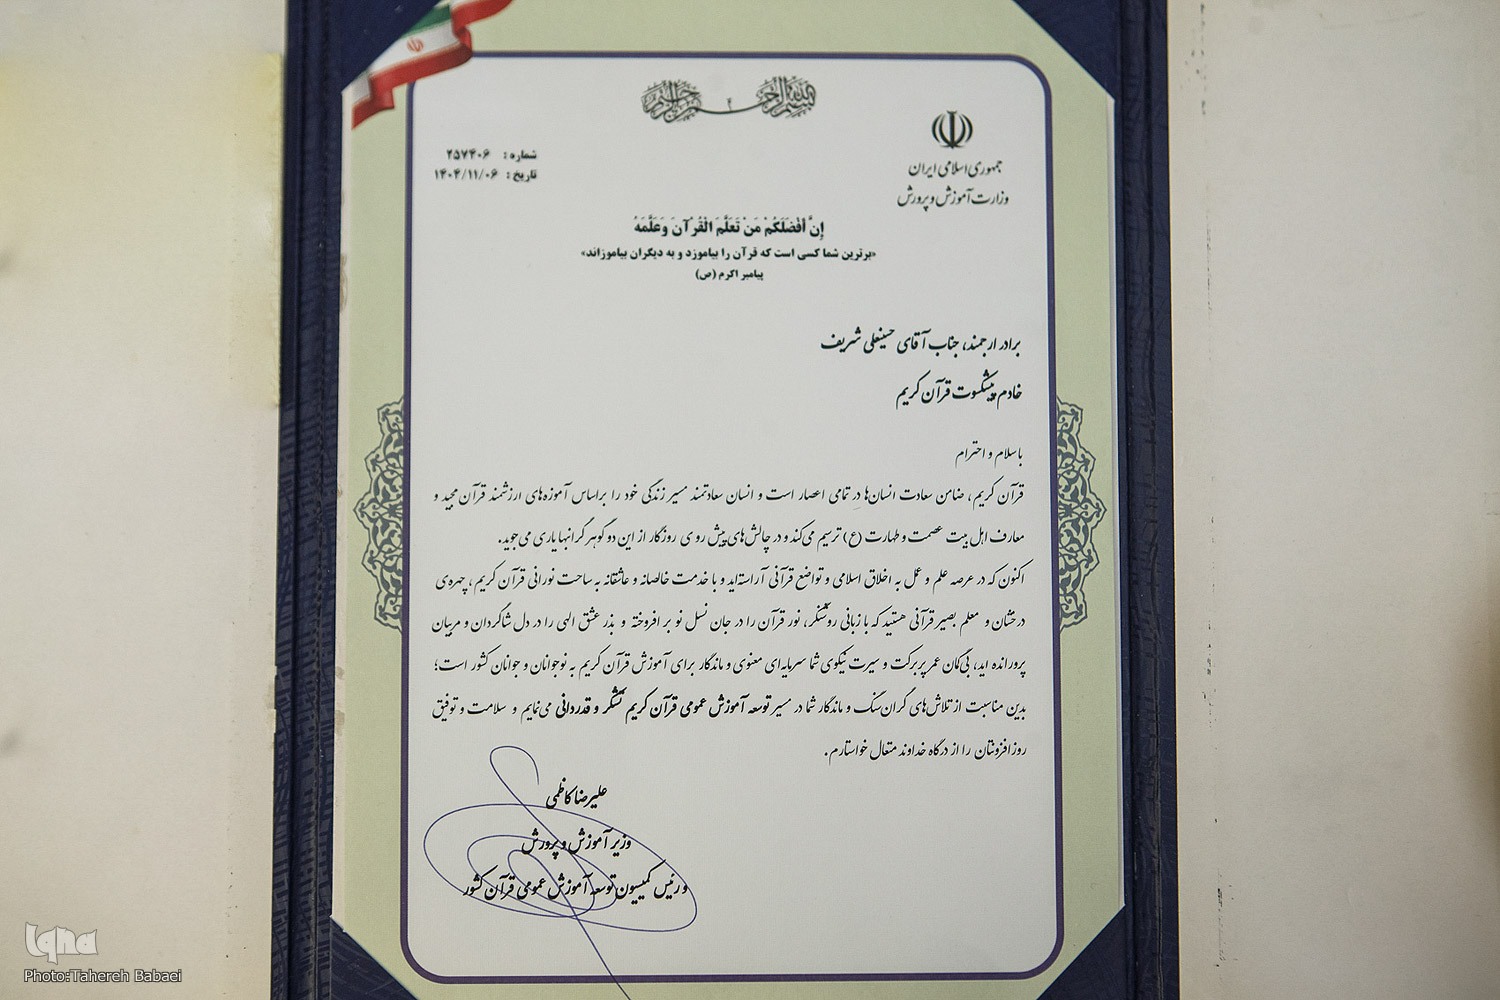 بسم الله الرحمن الرحیم
جمهوری اسلامی ایران
وزارت آموزش و پرورش
شماره : ۲۵۷۴۰۶
تاریخ : ۱۴۰۴/۱۱/۰۶
إِنَّ أفْضَلَكُمْ مَنْ تَعَلَّمَ الْقُرْآنَ وَعَلَّمَهُ
«برترین شما کسی است که قرآن را بیاموزد و به دیگران بیاموزاند»
پیامبر اکرم (ص)
برادر ارجمند، جناب آقای حسینعلی شریف
خادم پیشکسوت قرآن کریم
با سلام و احترام
قرآن کریم، ضامن سعادت انسان‌ها در تمامی اعصار است و انسان سعادتمند مسیر زندگی خود را براساس آموزه‌های ارزشمند قرآن مجید و
معارف اهل بیت عصمت و طهارت (ع) ترسیم می‌کند و در چالش‌های پیش روی روزگار از این دو گوهر گرانبها یاری می‌جوید.
اکنون که در عرصه علم و عمل به اخلاق اسلامی و تواضع قرآنی آراسته‌اید و با خدمت خالصانه و عاشقانه به ساحت نورانی قرآن کریم، چهره‌ی
درخشان و معلم بصیر قرآنی هستید که با زبانی روشنگر، نور قرآن را در جان نسل نو بر افروخته و بذر عشق الهی را در دل شاگردان و مربیان
پرورانده اید، بی‌گمان عمر پربرکت و سیرت نیکوی شما سرمایه‌ای معنوی و ماندگار برای آموزش قرآن کریم به نوجوانان و جوانان کشور است؛
بدین مناسبت از تلاش‌های گران‌سنگ و ماندگار شما در مسیر توسعه آموزش عمومی قرآن کریم تشکر و قدردانی می‌نمایم و سلامت و توفیق
روزافزونتان را از درگاه خداوند متعال خواستارم.
علیرضا کاظمی
وزیر آموزش و پرورش
و رئیس کمیسیون توسعه آموزش عمومی قرآن کشور
iqna
Photo:Tahereh Babaei